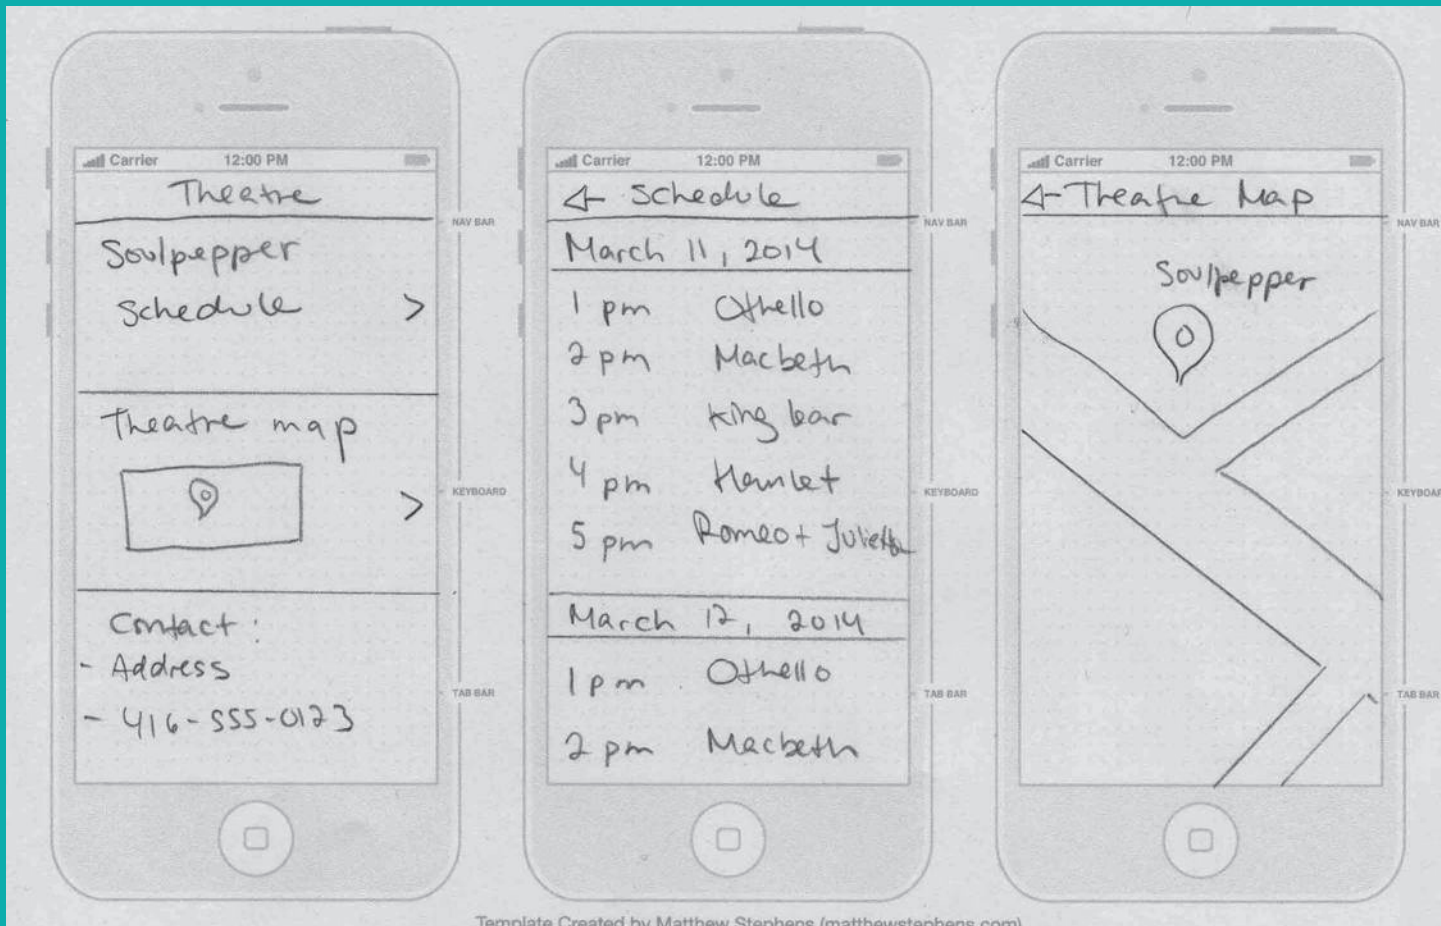 Carrier 12:00 PM
Theatre
NAV BAR
Soulpepper
Schedule >
Theatre map
>
KEYBOARD
Contact:
- Address
TAB BAR
- 416-555-0123
Carrier 12:00 PM
Schedule
NAV BAR
March 11, 2014
1 pm Othello
2 pm Macbeth
3 pm King Lear
4 pm Hamlet
KEYBOARD
5 pm Romeo + Juliette
March 12, 2014
1 pm Othello
TAB BAR
2 pm Macbeth
Carrier 12:00 PM
Theatre Map
NAV BAR
Soulpepper
KEYBOAR
TAB BAR
Template Created by Matthew Stephens (matthewstephens.com)